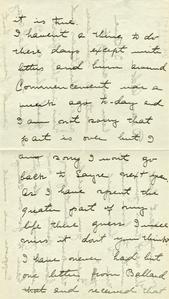 it is true.
I haven't a thing to do
these days except write
letters and bum around
Commencement was a
week ago to-day and
I am not sorry that
part is over but I
am sorry I won't go
back to Sayre next year
as I have spent the
greater part of my
life there guess I will
miss it don't you think
I have never had but
one letter from Ballard
and received that